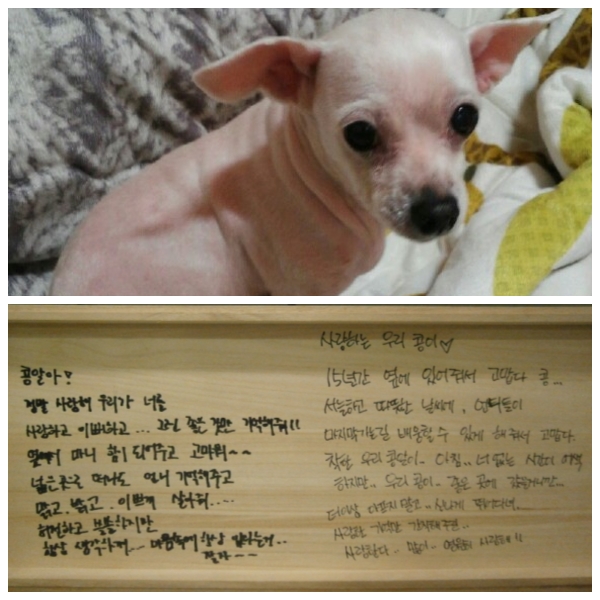 콩알아!
정말 사랑해 우리가 너를
사랑하고 이뻐하고... 좋은 것만 기억해줘!!
옆에서 마니 힘이 되어주고 고마워~~
넓은곳으로 떠나도 언니 기억해주고
맑고. 밝고. 이쁘게 살아줘....
허전하고 슬프지만
항상 생각할게... 마음속에 항상 있다는거..
잘자~~
사랑하는 우리 콩이♡
15년간 옆에 있어줘서 고맙다 콩...
선선하고 따뜻한 날씨에,
마지막가는길 배웅할 수 있게 해줘서 고맙다.
착한 우리 콩알이.. 아직.. 너 없는 시간이
하지만.. 우리 콩이.. 좋은 곳에
더이상 아프지 말고.. 신나게
사랑한 기억만
사랑한다.. 많이.. 영원히 사랑해!!